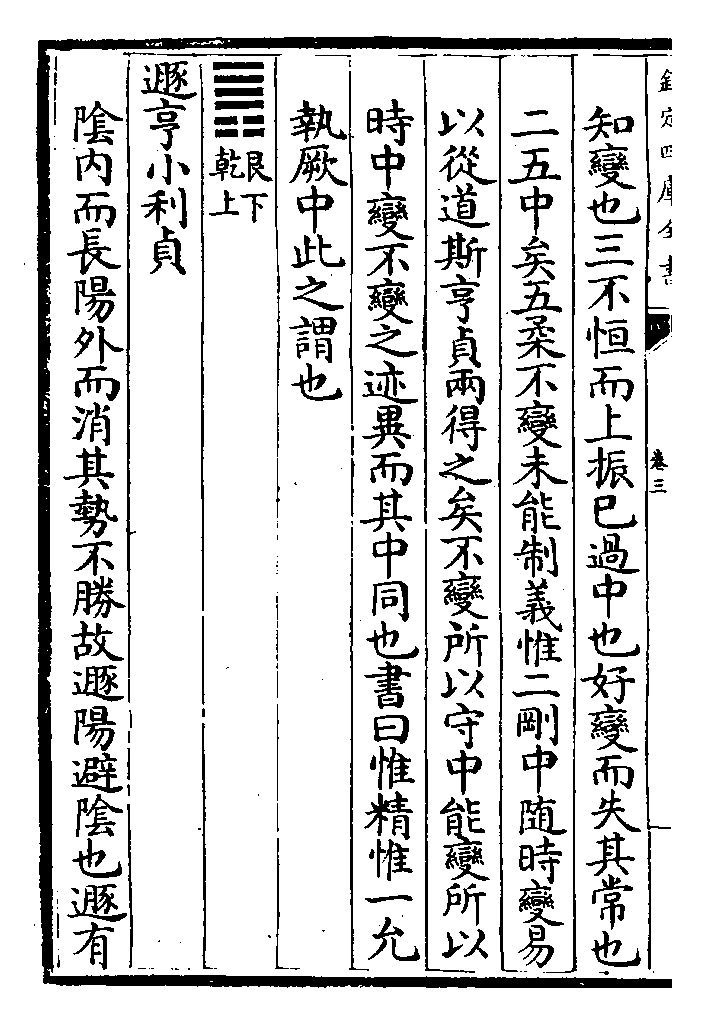 欽定四庫全書
卷三
知變也三不恒而上振已過中也好變而失其常也
二五中矣五柔不變未能制義惟二剛中隨時變易
以從道斯亨貞兩得之矣不變所以守中能變所以
時中變不變之迹異而其中同也書曰惟精惟一允
執厥中此之謂也
䷠艮下乾上
遯亨小利貞
陰内而長陽外而消其勢不勝故遯陽避陰也遯有